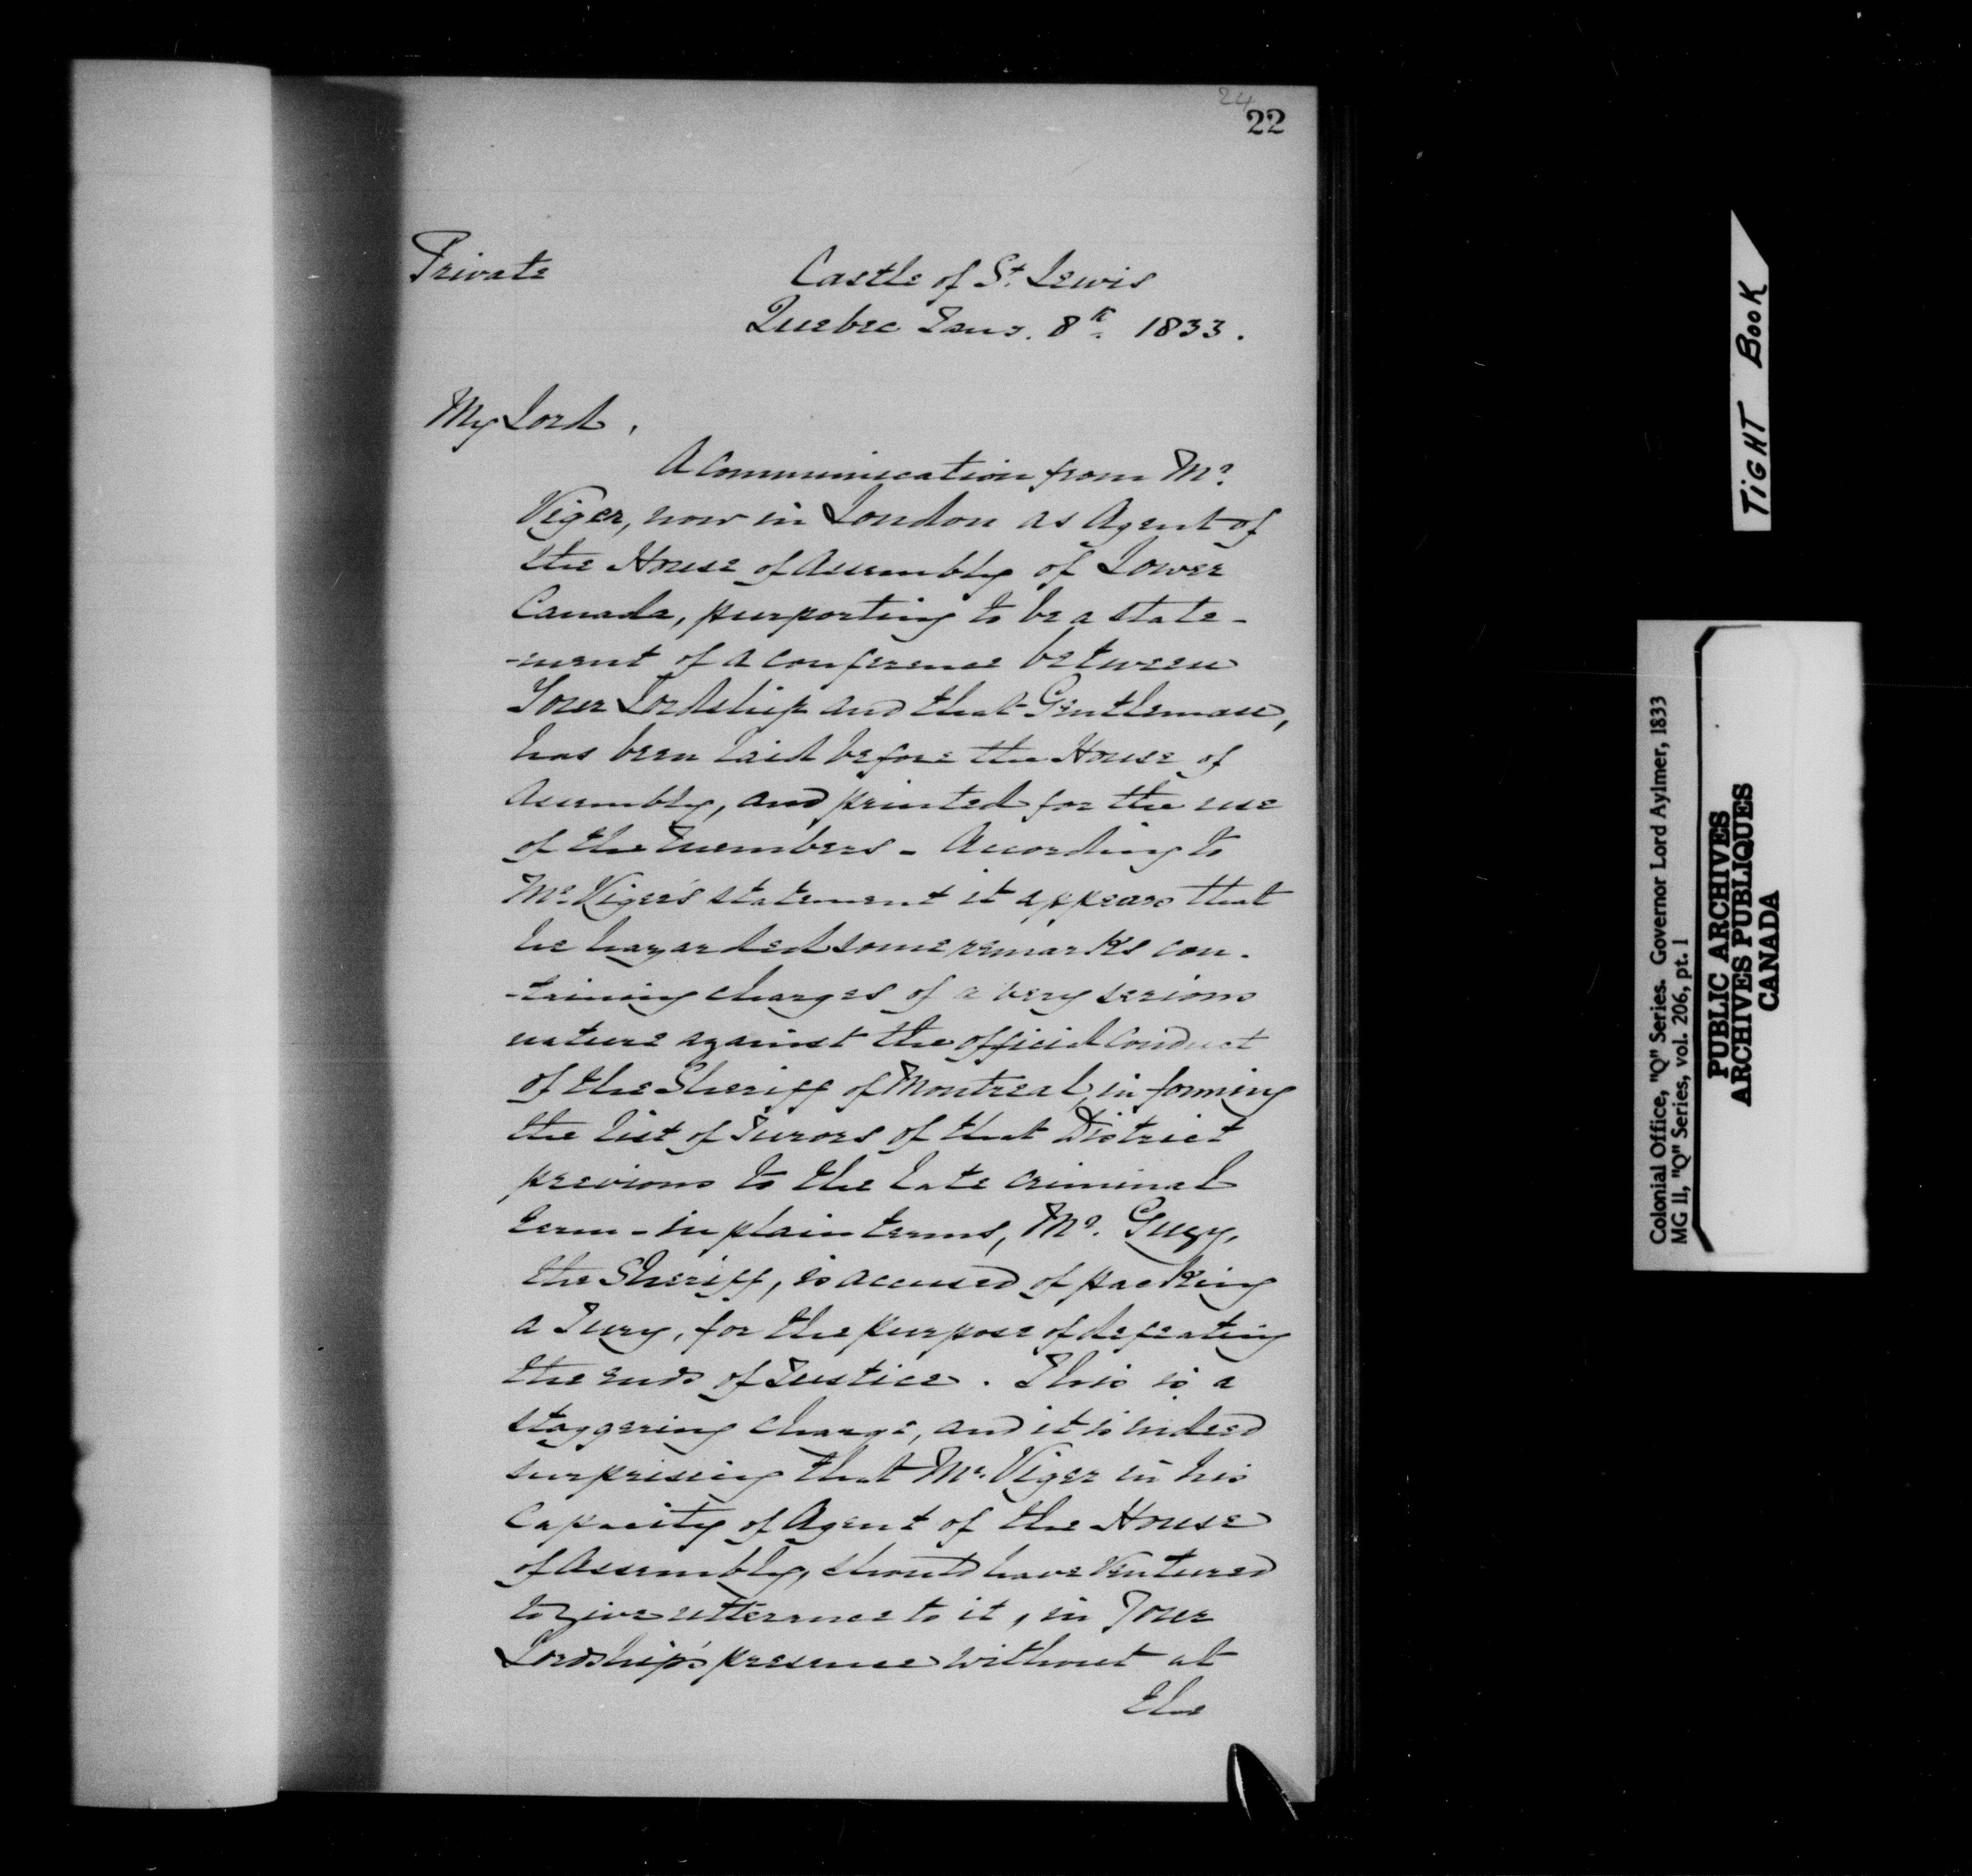 24
22
Private
Castle of St. Lewis
Quebec Jany. 8th 1833.
My Lord,
A communication from Mr.
Viger, now in London as Agent of
the House of Assembly of Lower
Canada, purporting to be a state-
-ment of a conference between
Your Lordship and that Gentleman,
has been laid before the House of
Assembly, and printed for the use
of the members - According to
Mr. Viger's statement it appears that
he hazarded some remarks con-
-taining charges of a very serious
nature against the official conduct
of the Sheriff of Montreal, in forming
the list of Jurors of that District
previous to the late criminal
term - in plain terms, Mr. Gugy,
the Sheriff, is accused of packing
a Jury, for the purpose of defeating
the ends of Justice. This is a
staggering charge, and it is indeed
surprising that Mr. Viger in his
Capacity of Agent of the House
of Assembly, should have Ventured
to give utterance to it, in Your
Lordship's presence without at
the
TIGHT BOOK
Colonial Office, "Q" Series. Governor Lord Aylmer, 1833
MG 11, "Q" Series, vol. 206, pt. 1
PUBLIC ARCHIVES
ARCHIVES PUBLIQUES
CANADA